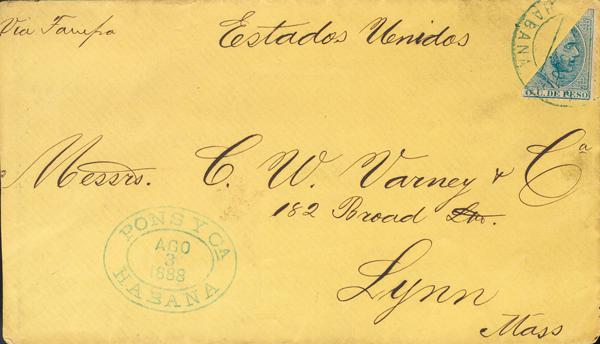 Via Tampa
Estados Unidos
HABANA
C. DE PESO
Messrs. C. W. Varney & Ca
182 Broad
Lynn
Mass
PONS Y CA
AGO
3
1888
HABANA